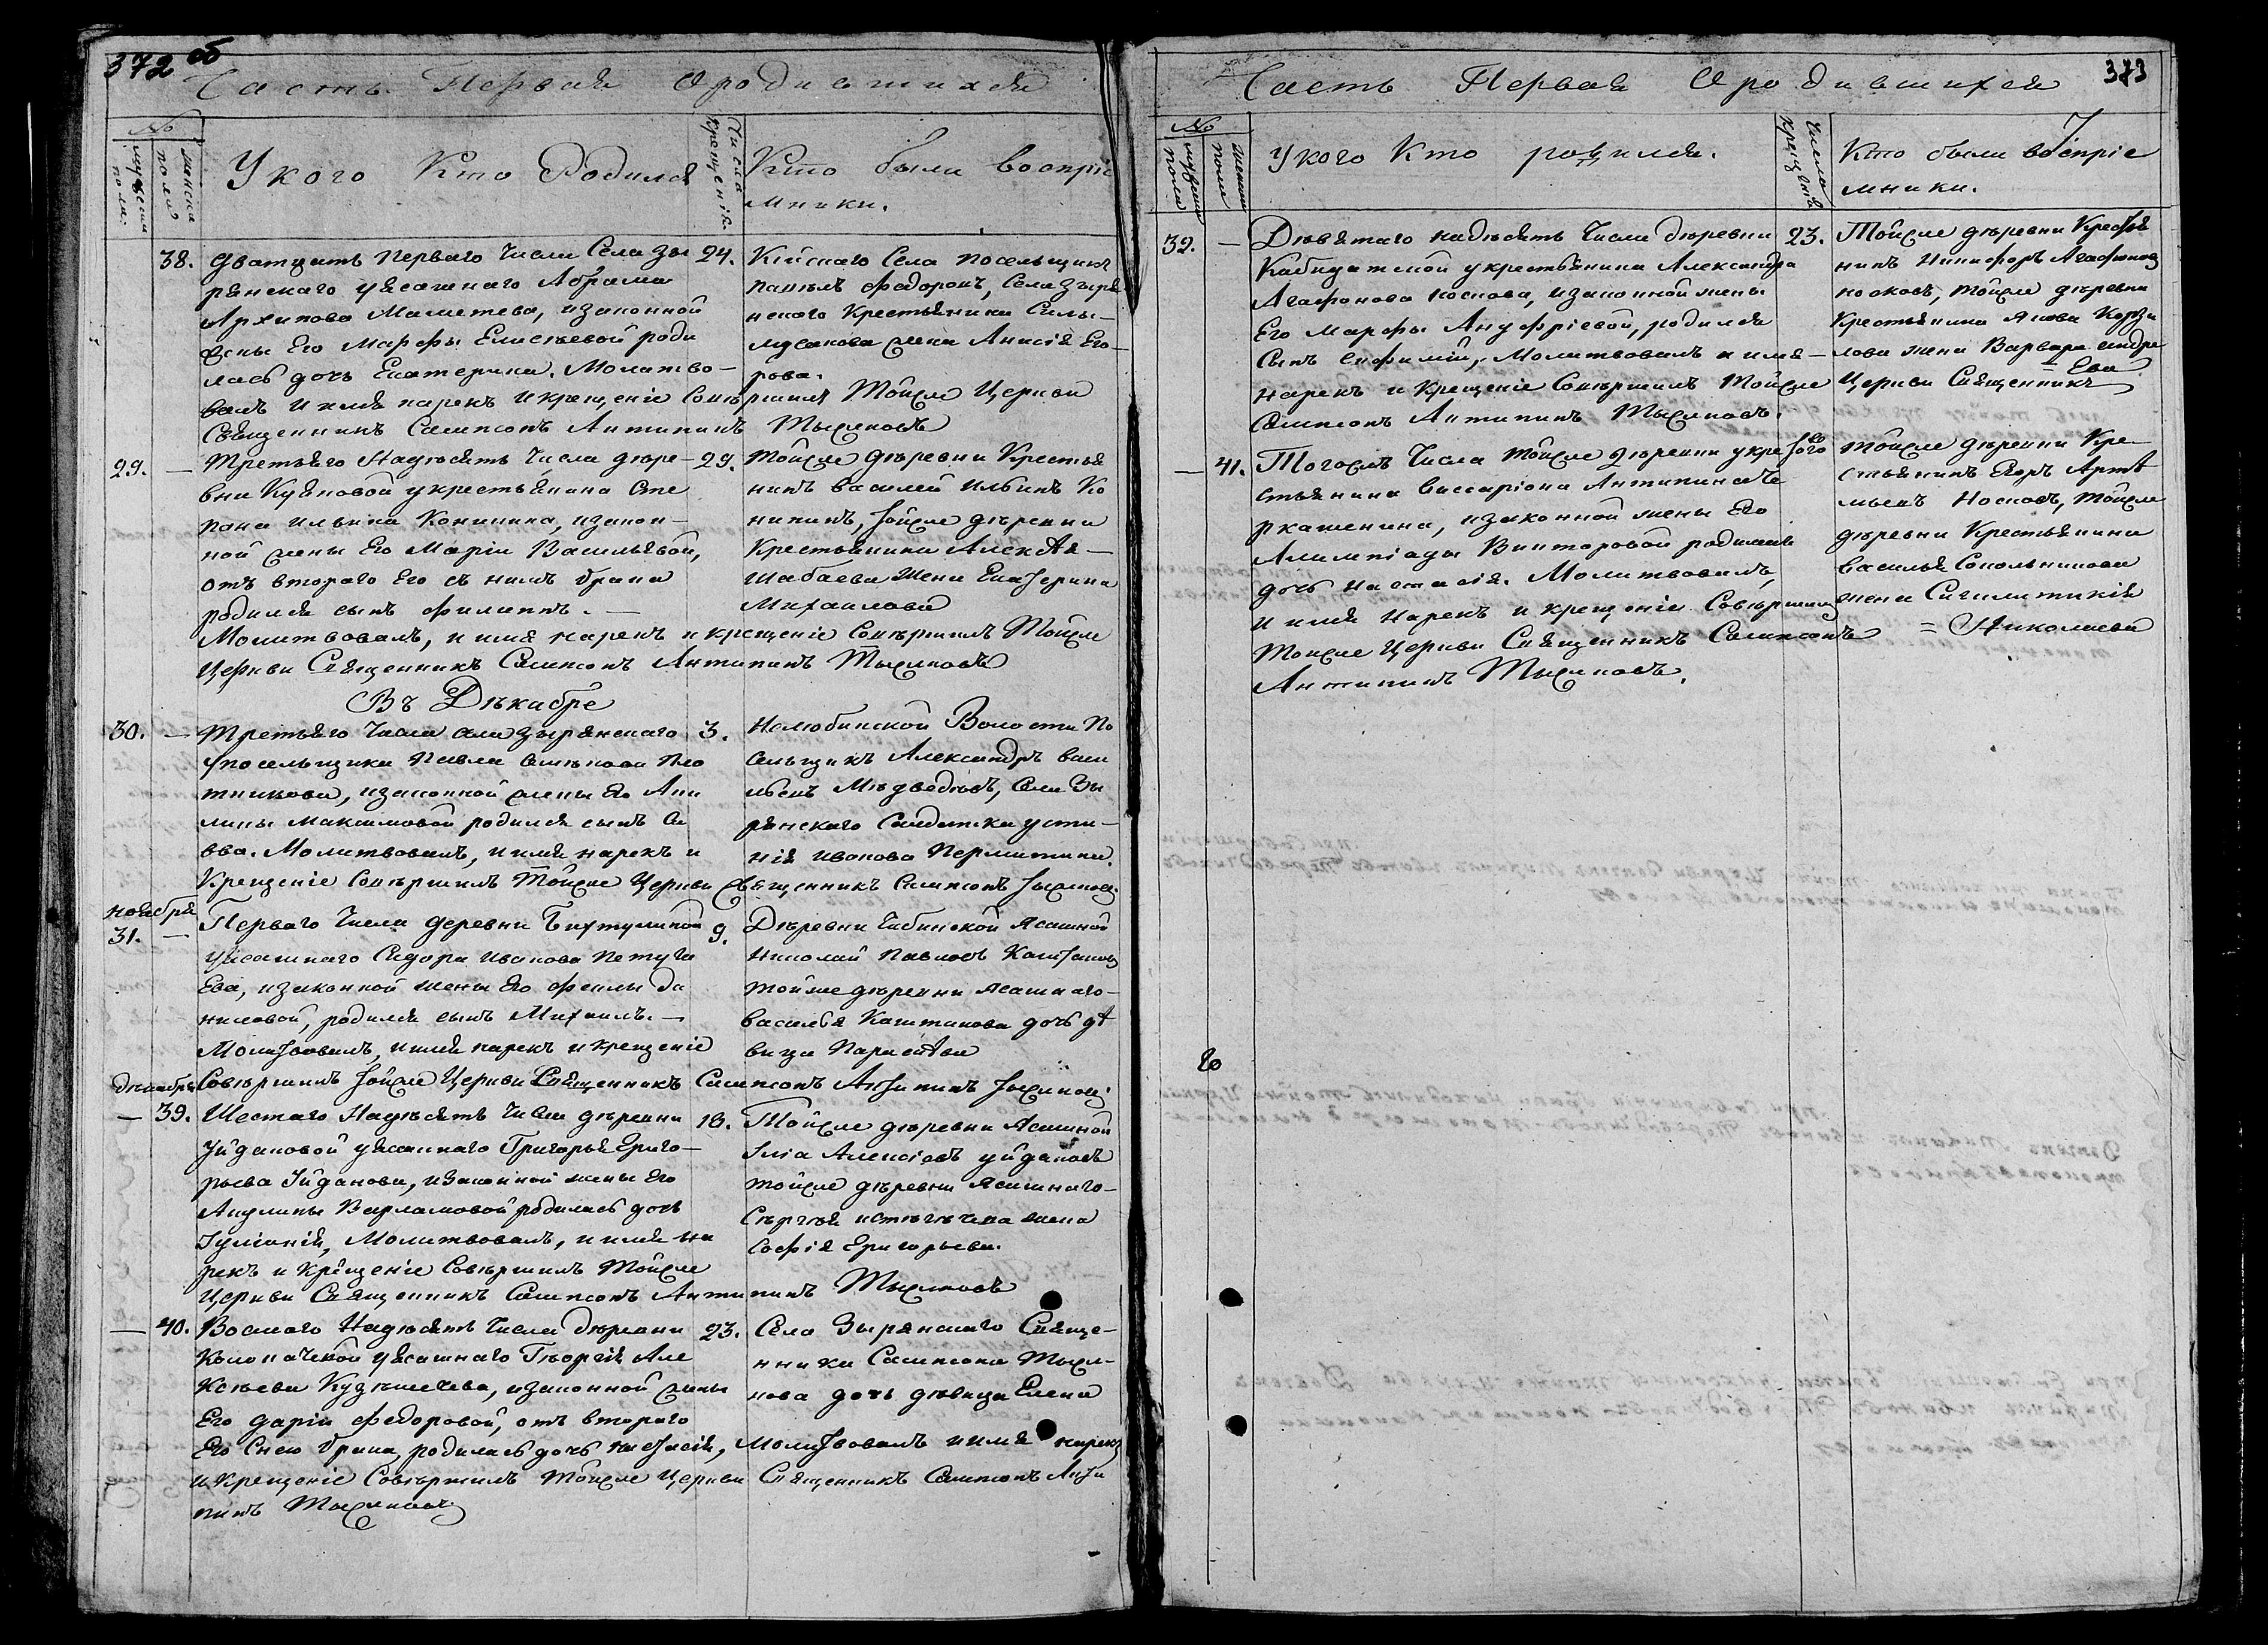 372 об
Часть Первая О родившихся
№
мужеска пола.
женска пола
У кого Кто Родился
Числа крещенія
Кто были воспріе
мники.
38. Дватцать перваго Числа Села Зы
рянскаго уясашнаго Абрама
Архипова Маметева, изаконной
жены Его Марфы Елисѣевой роди
лась дочь Екатерина. Молитво-
валъ и имя нарекъ и крещеніе Совершилъ Тойже Церкви
Священникъ Сампсонъ Антипинъ Тыжновъ
24. Кійскаго Села посельщикъ
Павелъ Федоровъ, Села Зыря
нскаго Крестьянина Силы
Мусакова жена Анисія Его-
рова.
29. — Третьяго Надесять Числа дере-
вни Куяновой у крестьянина Сте
пана Ильина Конинина, изакон-
ной жены Его Маріи Васильевой,
отъ втораго Его съ нимъ брака
родился сынъ Филиппъ. —
Молитвовалъ, и имя нарекъ и крещеніе Совершилъ Тойже
Церкви Священникъ Сампсонъ Антипинъ Тыжновъ
29. Тойже деревни Крестья
нинъ Василей Ильинъ Ко
нининъ, тойже деревни
Крестьянина Алексѣя —
Шабаева жена Екатерина
Михаилова
Въ Декабре
30. — Третьяго Числа Села Зырянскаго
у посельщика Павла Пло
тникова, изаконной жены Его Аки
лины Максимовой родился сынъ Са
вва. Молитвовалъ, и имя нарекъ и
Крещеніе Совершилъ Тойже Церкви Священникъ Сампсонъ Тыжновъ
3. Нелюбинской Волости По
сельщикъ Александръ Васи
льевъ Медведевъ, Села Зы
рянскаго Салдатка Усти-
нія Иванова Пермитина.
ноября
31. — Перваго Числа деревни Бихтулиной
уясашнаго Сидора Иванова Петуга
Ева, изаконной жены Его Феклы Да
ниловой, родился сынъ Михаилъ. —
Молитвовалъ, и имя нарекъ и крещеніе
Совершилъ тойже Церкви Священникъ Сампсонъ Антипинъ Тыжновъ
9. Деревни Чабинской Ясашной
Николай Павловъ Каштаковъ
тойже деревни Ясашнаго-
Василья Каштакова дочь дѣ
вица Параскѣва
декабря
— 39. Шестаго Надесять Числа деревни
Уйдановой уясашнаго Григорья Григо-
рьева Уйданова, изаконной жены Его
Акулины Варламовой родилась дочь
Іуліанія, Молитвовалъ, и имя на
рекъ и Крещеніе Совершилъ Тойже
Церкви Священникъ Сампсонъ Антипинъ Тыжновъ
18. Тойже деревни Ясашной
Ілія Алексіевъ Уйдановъ
тойже деревни Ясашнаго-
Сергѣя жена
Софія Григорьева.
— 40. Восмаго Надесять Числа деревни
уясашнаго Георгія Але
ксѣева, изаконной жены
Его Дарьи Федоровой, отъ втораго
Его Снею брака, родилась дочь Настасія, Молитвовалъ и имя нарекъ
и Крещеніе Совершилъ Тойже Церкви Священникъ Сампсонъ Анти
пинъ Тыжновъ
23. Села Зырянскаго Свяще-
нника Сампсона Тыж-
нова дочь девица Елена
373
Часть Первая О родившихся
№
мужеска пола
женска пола
У кого Кто родился.
Числа крещенія
Кто были воспріе
мники.
32. — Девятаго надесять Числа деревни
у крестьянина Александра
Агафонова Носкова, изаконной жены
Его Марфы Ануфріевой, родился
Сынъ Ефимій, Молитвовалъ и имя —
нарекъ и Крещеніе Совершилъ Тойже Церкви Священникъ
Сампсонъ Антипинъ Тыжновъ.
23. Тойже деревни Крестья
нинъ Никифоръ Агафоновъ
Носковъ, тойже деревни
Крестьянина Якова
жена Варвара Андре
= Ева
— 41. Тогожъ Числа Тойже деревни у кре
стьянина Виссаріона Антипина
изаконной жены Его
Алимпіады Викторовой родилась
дочь Настасія. Молитвовалъ,
и имя Нарекъ и крещеніе Совершилъ
Тойже Церкви Священникъ Сампсонъ
Антипинъ Тыжновъ.
того Тойже деревни Кре-
стьянинъ Егоръ Артѣ
мьевъ Носковъ, Тойже
деревни Крестьянина
Василья Сокольникова
жена
= Николаева